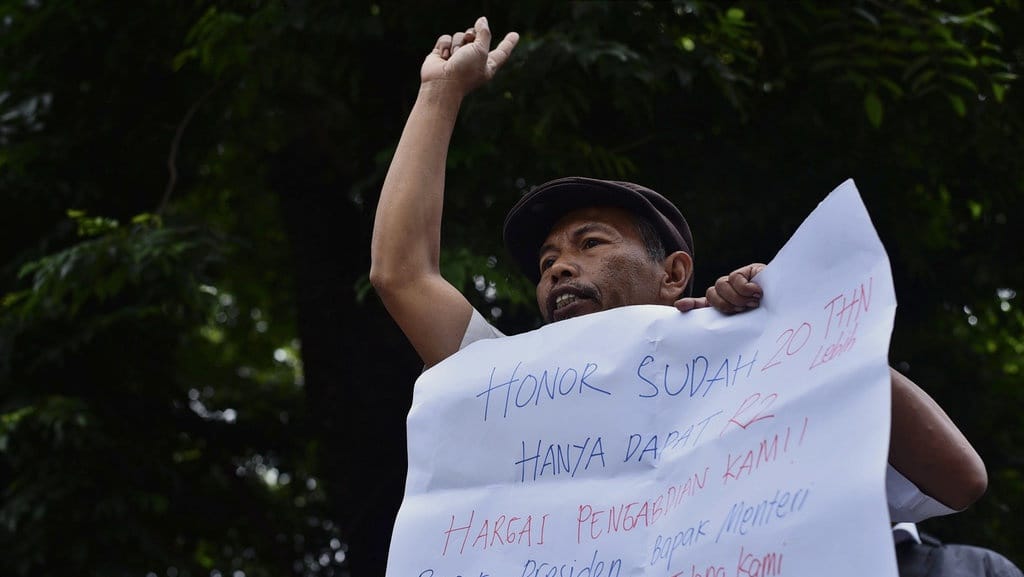 HONOR SUDAH 20 THN
Lebih
HANYA DAPAT R2
HARGAI PENGABDIAN KAMI!
Presiden Bapak Menteri
Kami